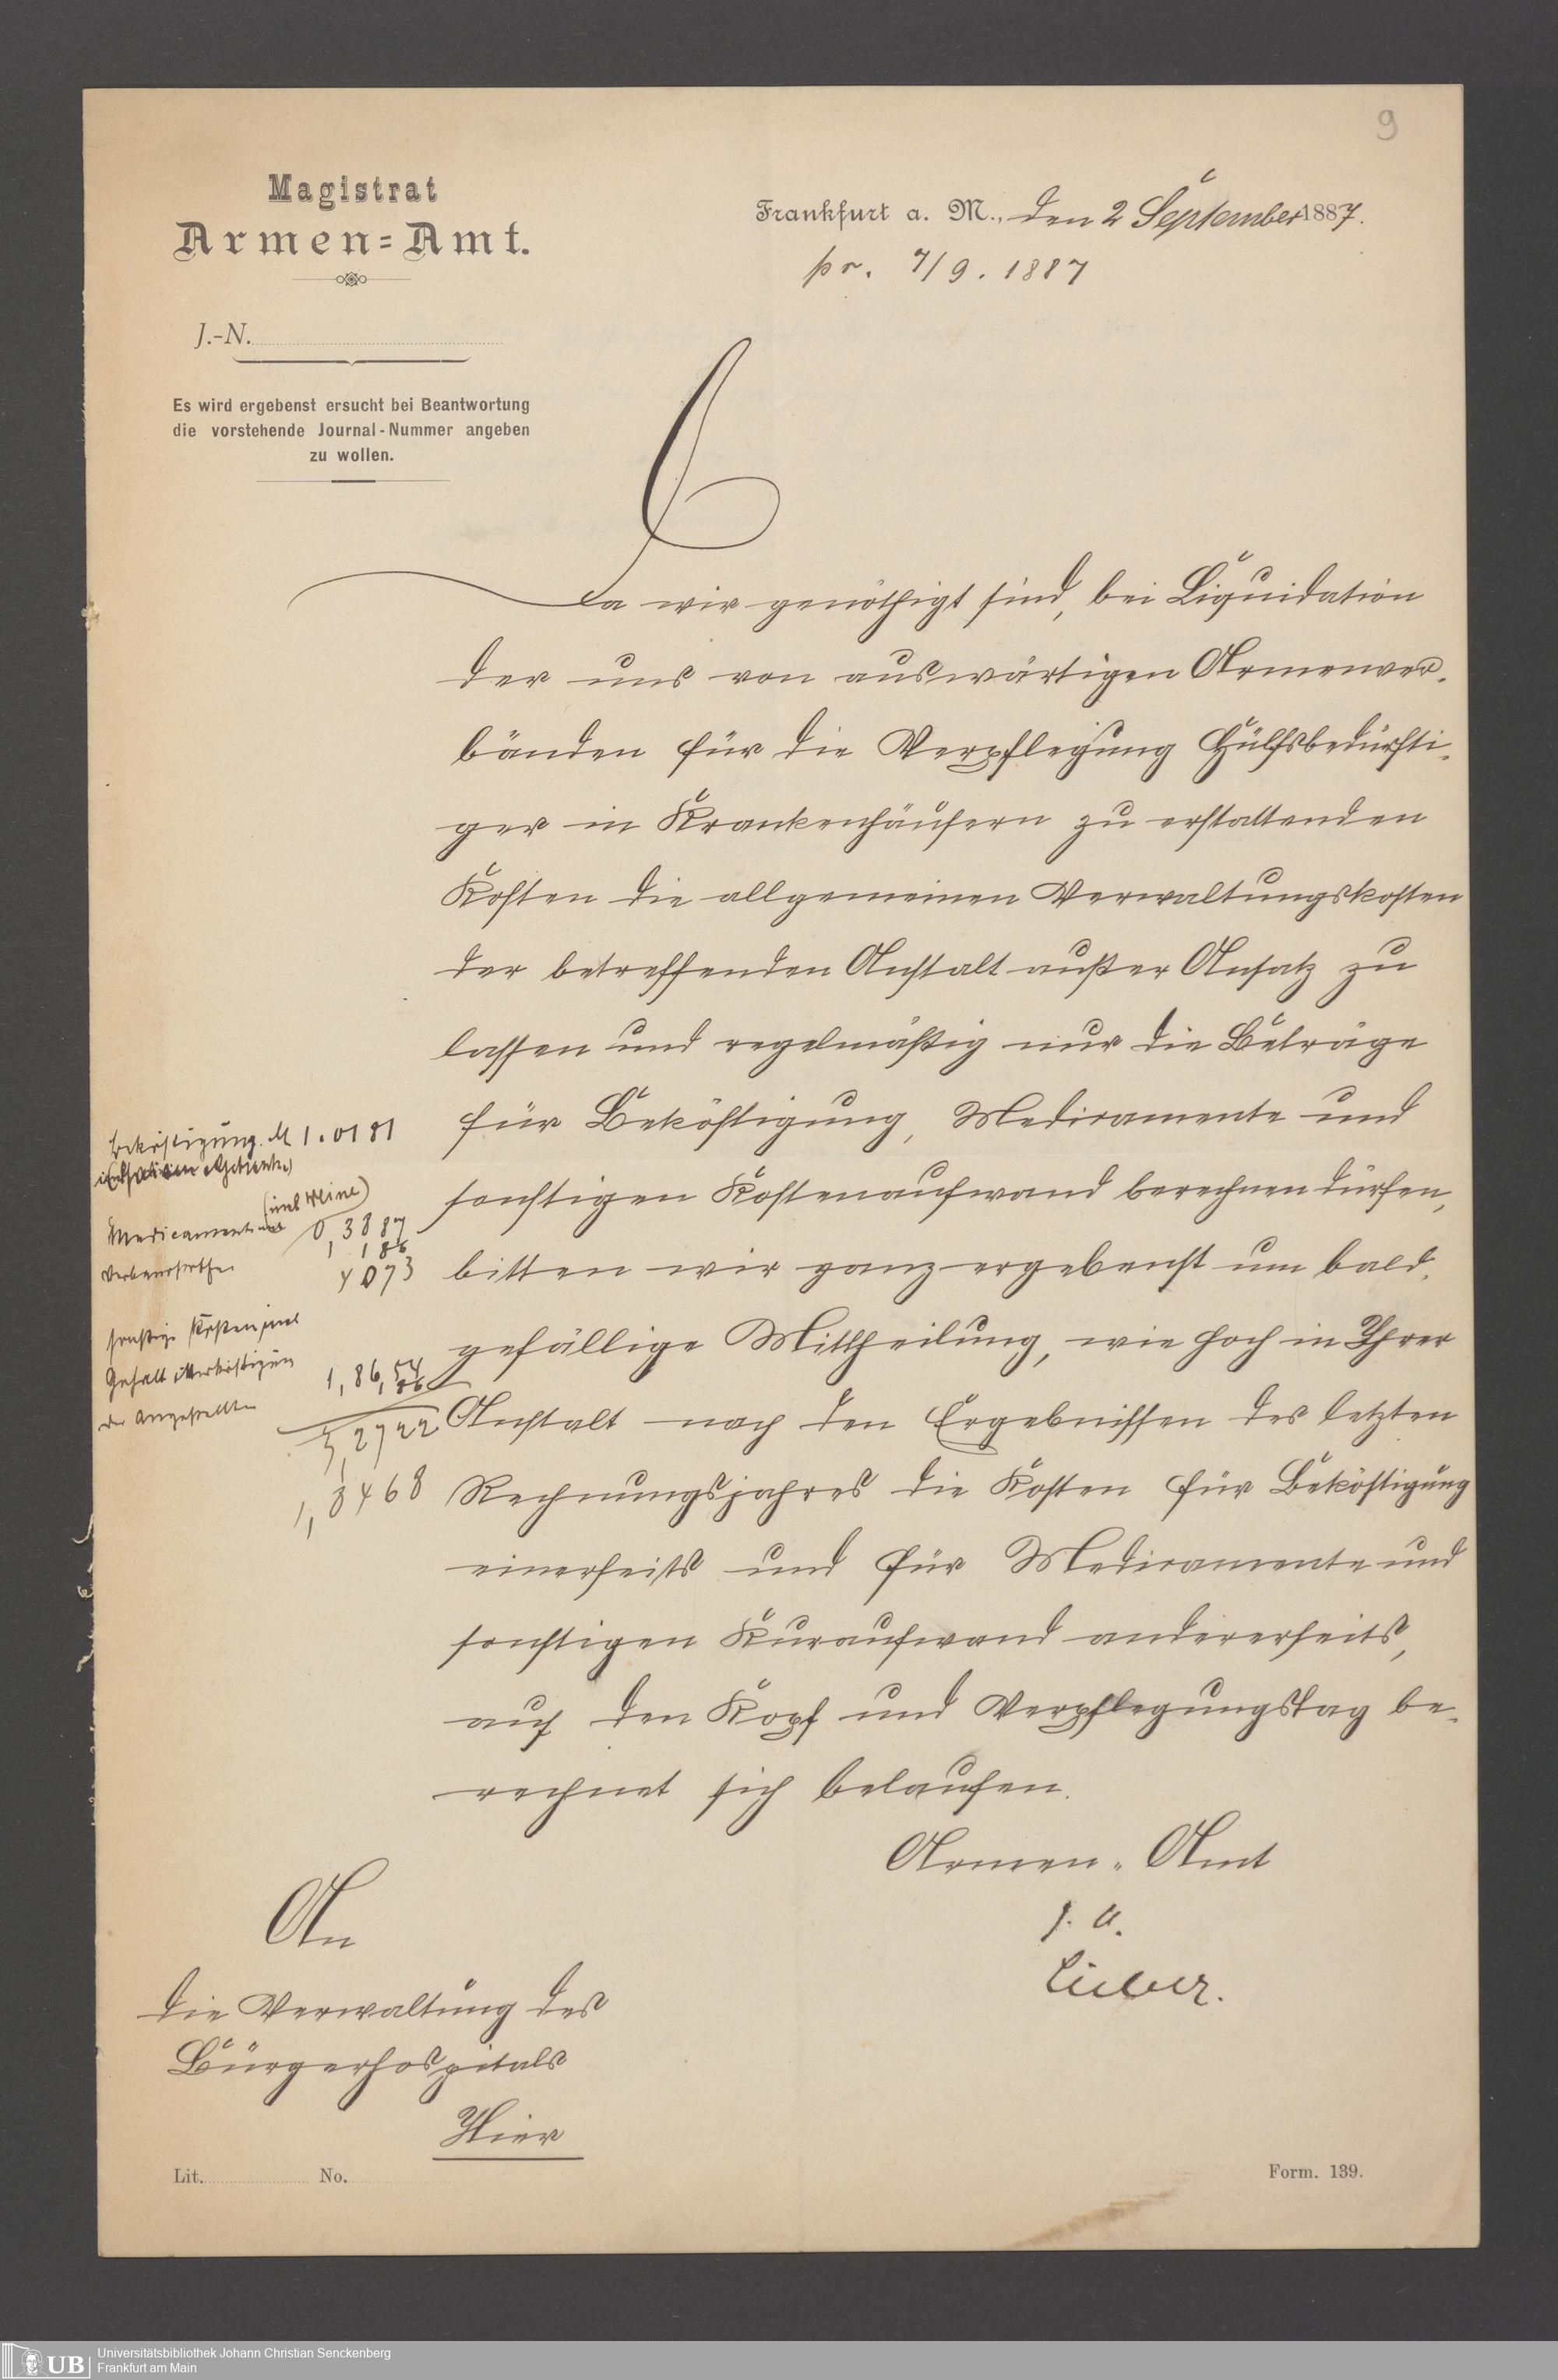 9
Magistrat
Armen-Amt.
Frankfurt a. M., den 2 September 1887.
pr. 7/9. 1887
J.-N.
Es wird ergebenst ersucht bei Beantwortung
die vorstehende Journal-Nummer angeben
zu wollen.
Da wir genöthigt sind, bei Liquidation
der uns von auswärtigen Armenver-
bänden für die Verpflegung Hülfsbedürfti-
ger in Krankenhäusern zu erstattenden
Kosten die allgemeinen Verwaltungskosten
der betreffenden Anstalt außer Ansatz zu
lassen und regelmäßig nur die Beträge
für Beköstigung, Medicamente und
sonstigen Kostenaufwand berechnen dürfen,
bitten wir ganz ergebenst um bald-
gefällige Mittheilung, wie hoch in Ihrer
Anstalt nach den Ergebnissen des letzten
Rechnungsjahres die Kosten für Beköstigung
einerseits und für Medicamente und
sonstigen Kuraufwand andererseits,
auf den Kopf und Verpflegungstag be-
rechnet sich belaufen.
Beköstigung. M 1.0181
(incl Weine)
Medicamente und 0,3887
186
Verbandstoffe 4073
sonstige Kosten incl
Gehalt
1,86,54
der Angestellten
3,2722
1,3468
Armen-Amt
Lieber.
An
die Verwaltung des
Bürgerhospitals
Hier
Lit. No.
Form. 139.
UB
Universitätsbibliothek Johann Christian Senckenberg
Frankfurt am Main